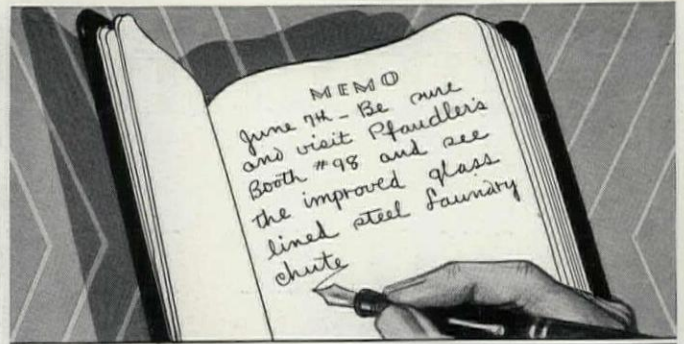 MEMO
June 7th - Be sure
and visit Pfaudler's
Booth #98 and see
the improved glass
lined steel laundry
chute